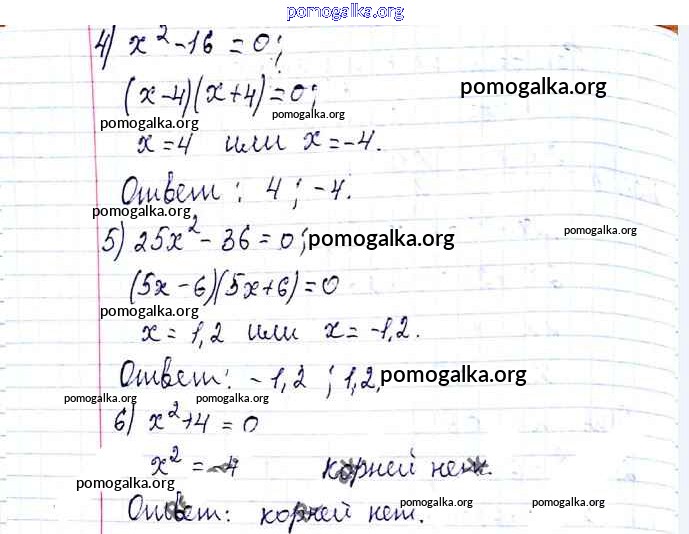 pomogalka.org
4) x² - 16 = 0;
(x-4)(x+4)=0; pomogalka.org
pomogalka.org pomogalka.org
x=4 или x=-4.
Ответ: 4; -4.
pomogalka.org
5) 25x² - 36 = 0; pomogalka.org pomogalka.org
(5x-6)(5x+6)=0
pomogalka.org
x = 1,2 или x = -1,2.
Ответ: -1,2; 1,2. pomogalka.org
pomogalka.org pomogalka.org
6) x²+4=0
x² = -4 корней нет.
pomogalka.org
pomogalka.org pomogalka.org
Ответ: корней нет.